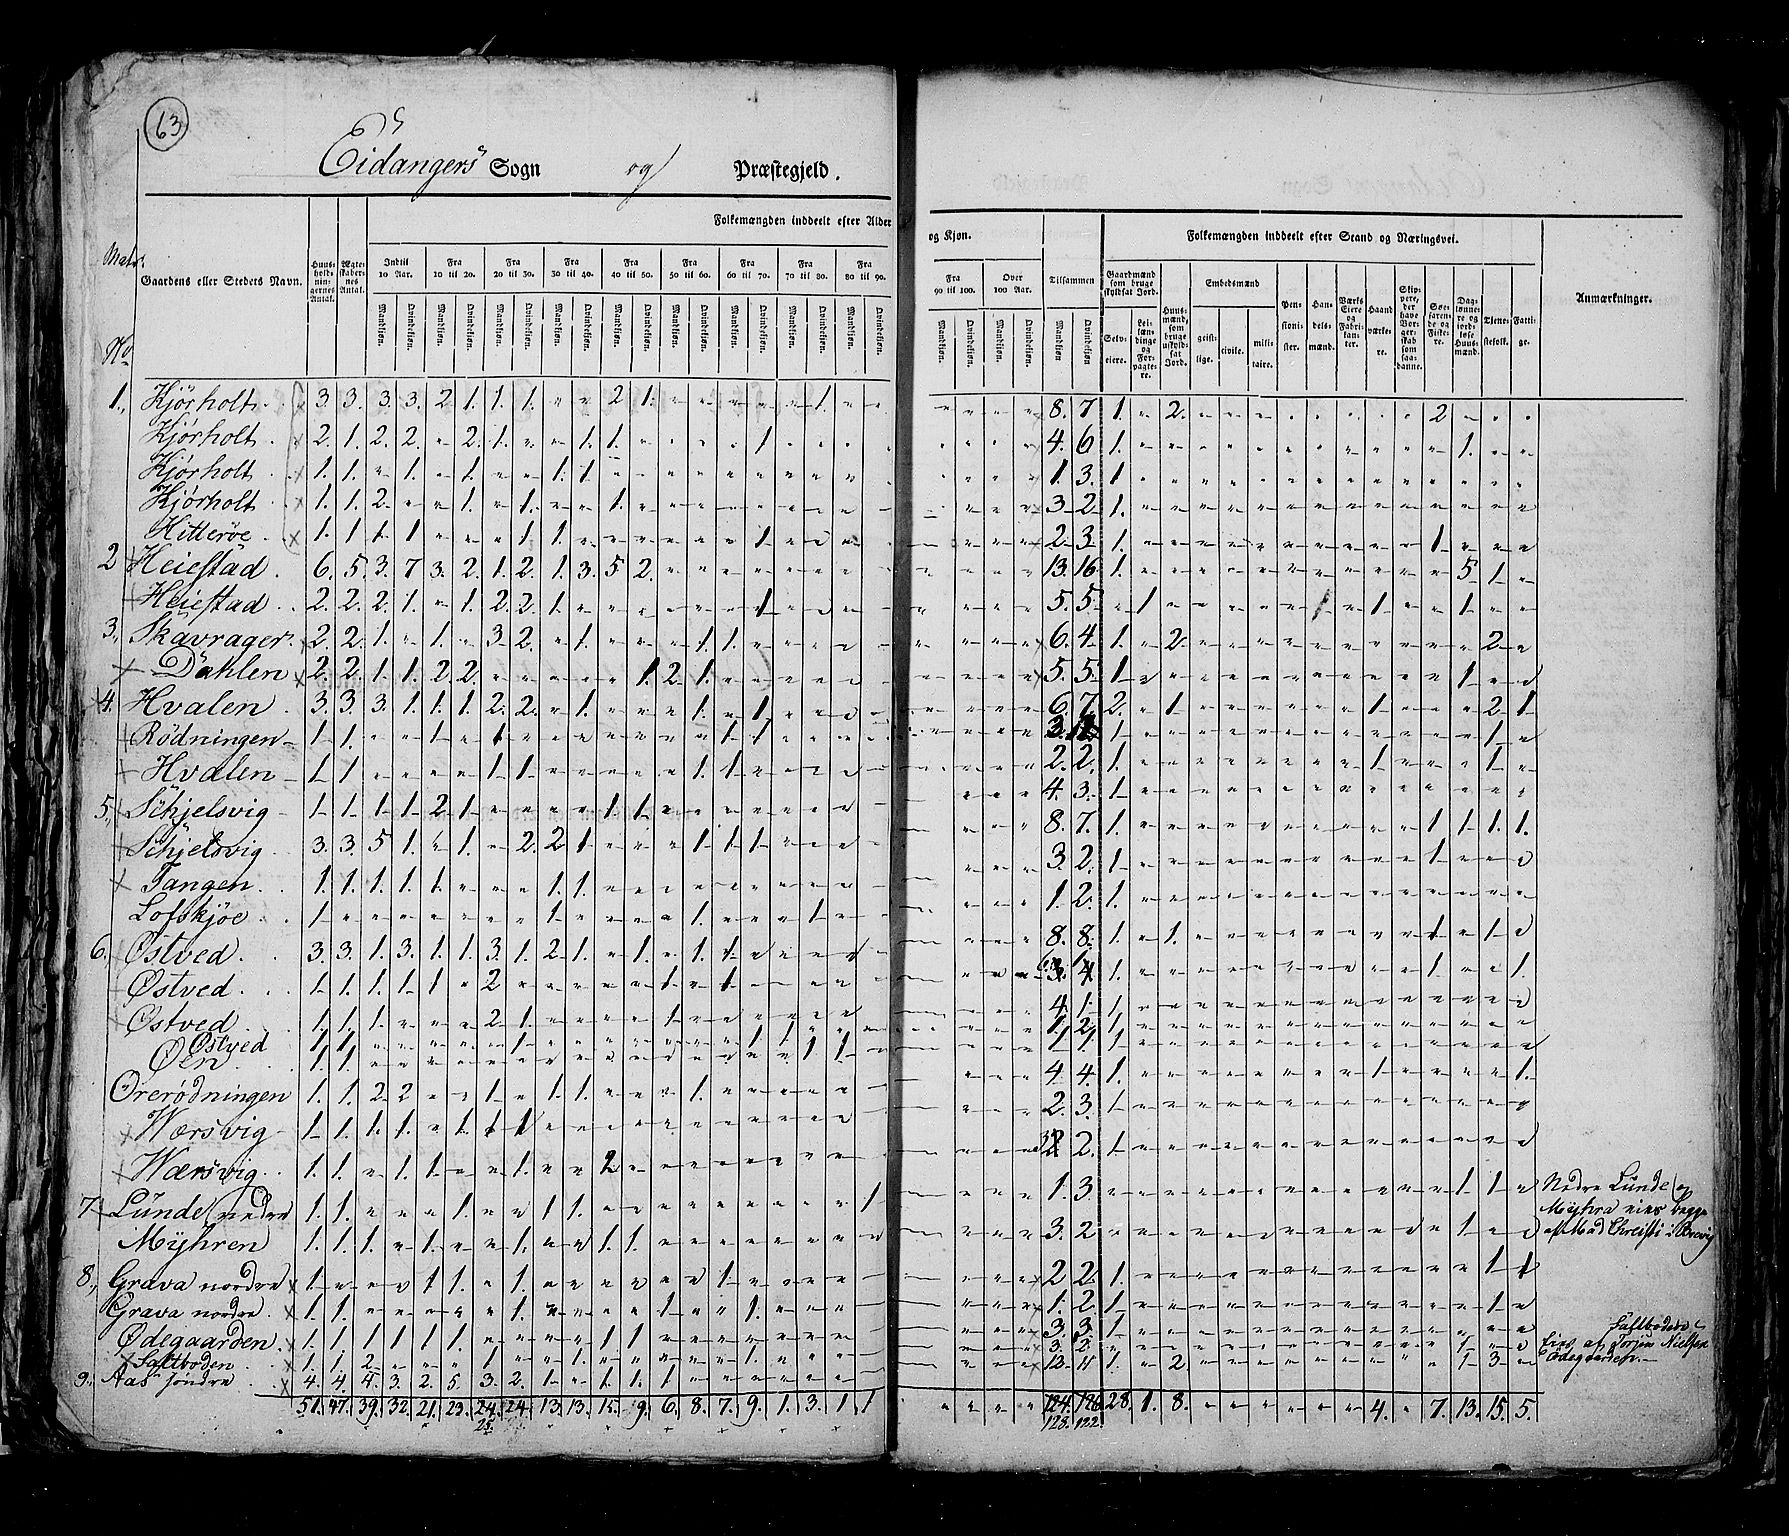 63
Eidangers Sogn og Præstegjeld.
Folkemængden inddeelt efter Alder
og Kjøn.
Folkemængden inddeelt efter Stand og Næringsvei.
Matr. No
Gaardens eller Stedets Navn.
Huus-holdnin-gernes Antal.
Ægte-skaber-nes Antal.
Indtil 10 Aar.
Fra 10 til 20.
Fra 20 til 30.
Fra 30 til 40.
Fra 40 til 50.
Fra 50 til 60.
Fra 60 til 70.
Fra 70 til 80.
Fra 80 til 90.
Fra 90 til 100.
Over 100 Aar.
Tilsammen
Mandkjøn. Qvindekjøn.
Gaardmænd som bruge skyldsat Jord.
Selv-eiere.
Lei-læn-dinge og For-pagte-re.
Huus-mænd, som bruge uskyld-sat Jord.
Embedsmænd
geist-lige.
civile.
mili-taire.
Pen-sioni-ster.
Han-dels-mænd.
Værks Eiere og Fabri-kan-ter.
Haand værke-re.
Skip-pere, der have Bor-ger-skab som saa-danne.
Søe-faren-de og Fiske-re.
Dag-lønne-re og jord-løse Huus-mænd.
Tjene-stefolk.
Fatti-ge.
Anmærkninger.
1., Kjörholt. 3. 3. 3. 3. 2. 1. 1. 1. " " 2. 1. " " " " " 1. " " 8. 7 1. " 2. 2
Kjörholt. 2. 1. 2. 2. " 2. 1. " " 1. 1. 1 4. 6 1. 1.
Kjörholt 1. 1. " 1. " 1. " " 1. 1. 1. 3. 1
Kjörholt 1. 1. 2. " " 1. " 1. " " 1. 3. 2. 1.
Hitteröe. 1. 1. 1. 1 " " " 1. 1. 1. 2. 3. 1. 1
2 Heiestad. 6. 5. 3. 7. 3. 2. 1. 2. 1. 3. 5. 2. 13. 16. 1. 5. 1.
Heiestad 2. 2. 2. 1. " 1. 2. 2. 1. 1 5. 5. " 1 1. 1.
3., Skavrager. 2. 2. 1. " 1. " 3. 2. " 1. 1. 1. 6. 4. 1. " 2. 2.
Dahlen 2. 2. 1. 1. 2. 2. 1. 2. 1. 5. 5. 1. 1.
4. Hvalen. 3. 3. 3. 1. 1. 1. 2. 2. " 1. 1. " 1. 6. 7. 2. " 1. 1. 2. 1.
Rödningen 1. 1. " " 1. " 1 1. 1. 3. 1. 1.
Hvalen 1. 1. 1. 1. 1. 1. 2. 2. 1. 1. 1.
5., Schjelsvig 1. 1. 1. 1. 2. 1. 1. 1. 4. 3. 1.
Schjelsvig 3. 3. 5. 1. " 1. " 2. 2. 1. 1. 1. 1. 8. 7. 1. 1. 1. 1. 1.
Tangen. 1. 1. 1. 1. 1. " " " 1. 1. 3. 2. 1. 1.
Lofskjöe. 1. 1. 1. 1. 1. 2. 1.
6., Östved. 3. 3. 1. 3. 1. 1. 3. 1. 2. 1. " 1. " 1. 1. 8. 8. 1. " 1. 1 " 1.
Östved. 1. 1. 1. 1. 1. " 2. 1. " 1. 4 1. 1. 1.
Östved 1. 1. 1. 2. 1. 1. 4. 1. 1.
Östved 1. 1. 1. 1. 1. 1. 2. 1
Öen 1. 1. 1. 1. 1. 1. 1.
Örerödningen 1. 1. 2. 2. " " 1. " 1. 1. 1. 4. 4. 1. 1. 1.
Wærsvig 1. 1. 1. 1. " 1. 1. 1. 2. 3. 1.
Wærsvig. 1. 1. " 1. 1. " " 1. " " 2. 2. 1.
7. Lunde nedre 1. 1. " " " 1. " " 1. 1. 1 1. 3. 1. 1. Nedre Lunde og
Myhren 1. 1. 1. " 1. " " 1. " " 1. 1. 3. 2. 1. Myhra eies begge
af Mad Christi i Brevig
8., Grava nordre 1. 1. 1. " 1. 1. 2. 2. 1. 1. 1
Grava nordre. 1. 1. 1. 1. 1. 1. 2. 1. 1.
Ödegaarden 1. 1. 1. 1. 1. 1. 1. 1. 3. 3. 1.
Saltboden 1. 1. 2. 1. 1. 3. 2. 1 Saltboden
Eies af Torjus Nielsen
Ödegaarden.
9., Aas söndre 4. 4. 4. 3. 2. 5. 3. 2. 1. " 1. 1. 1. 13. 11. 1. " 2. 1. 3.
51. 47. 39. 32. 21. 23. 24. 24. 13. 13. 15. 9. 6. 8. 7. 9. 1. 3. 1. 1 124. 126 28. 1. 8. 4. 7. 13. 15. 5.
25. 128. 122.